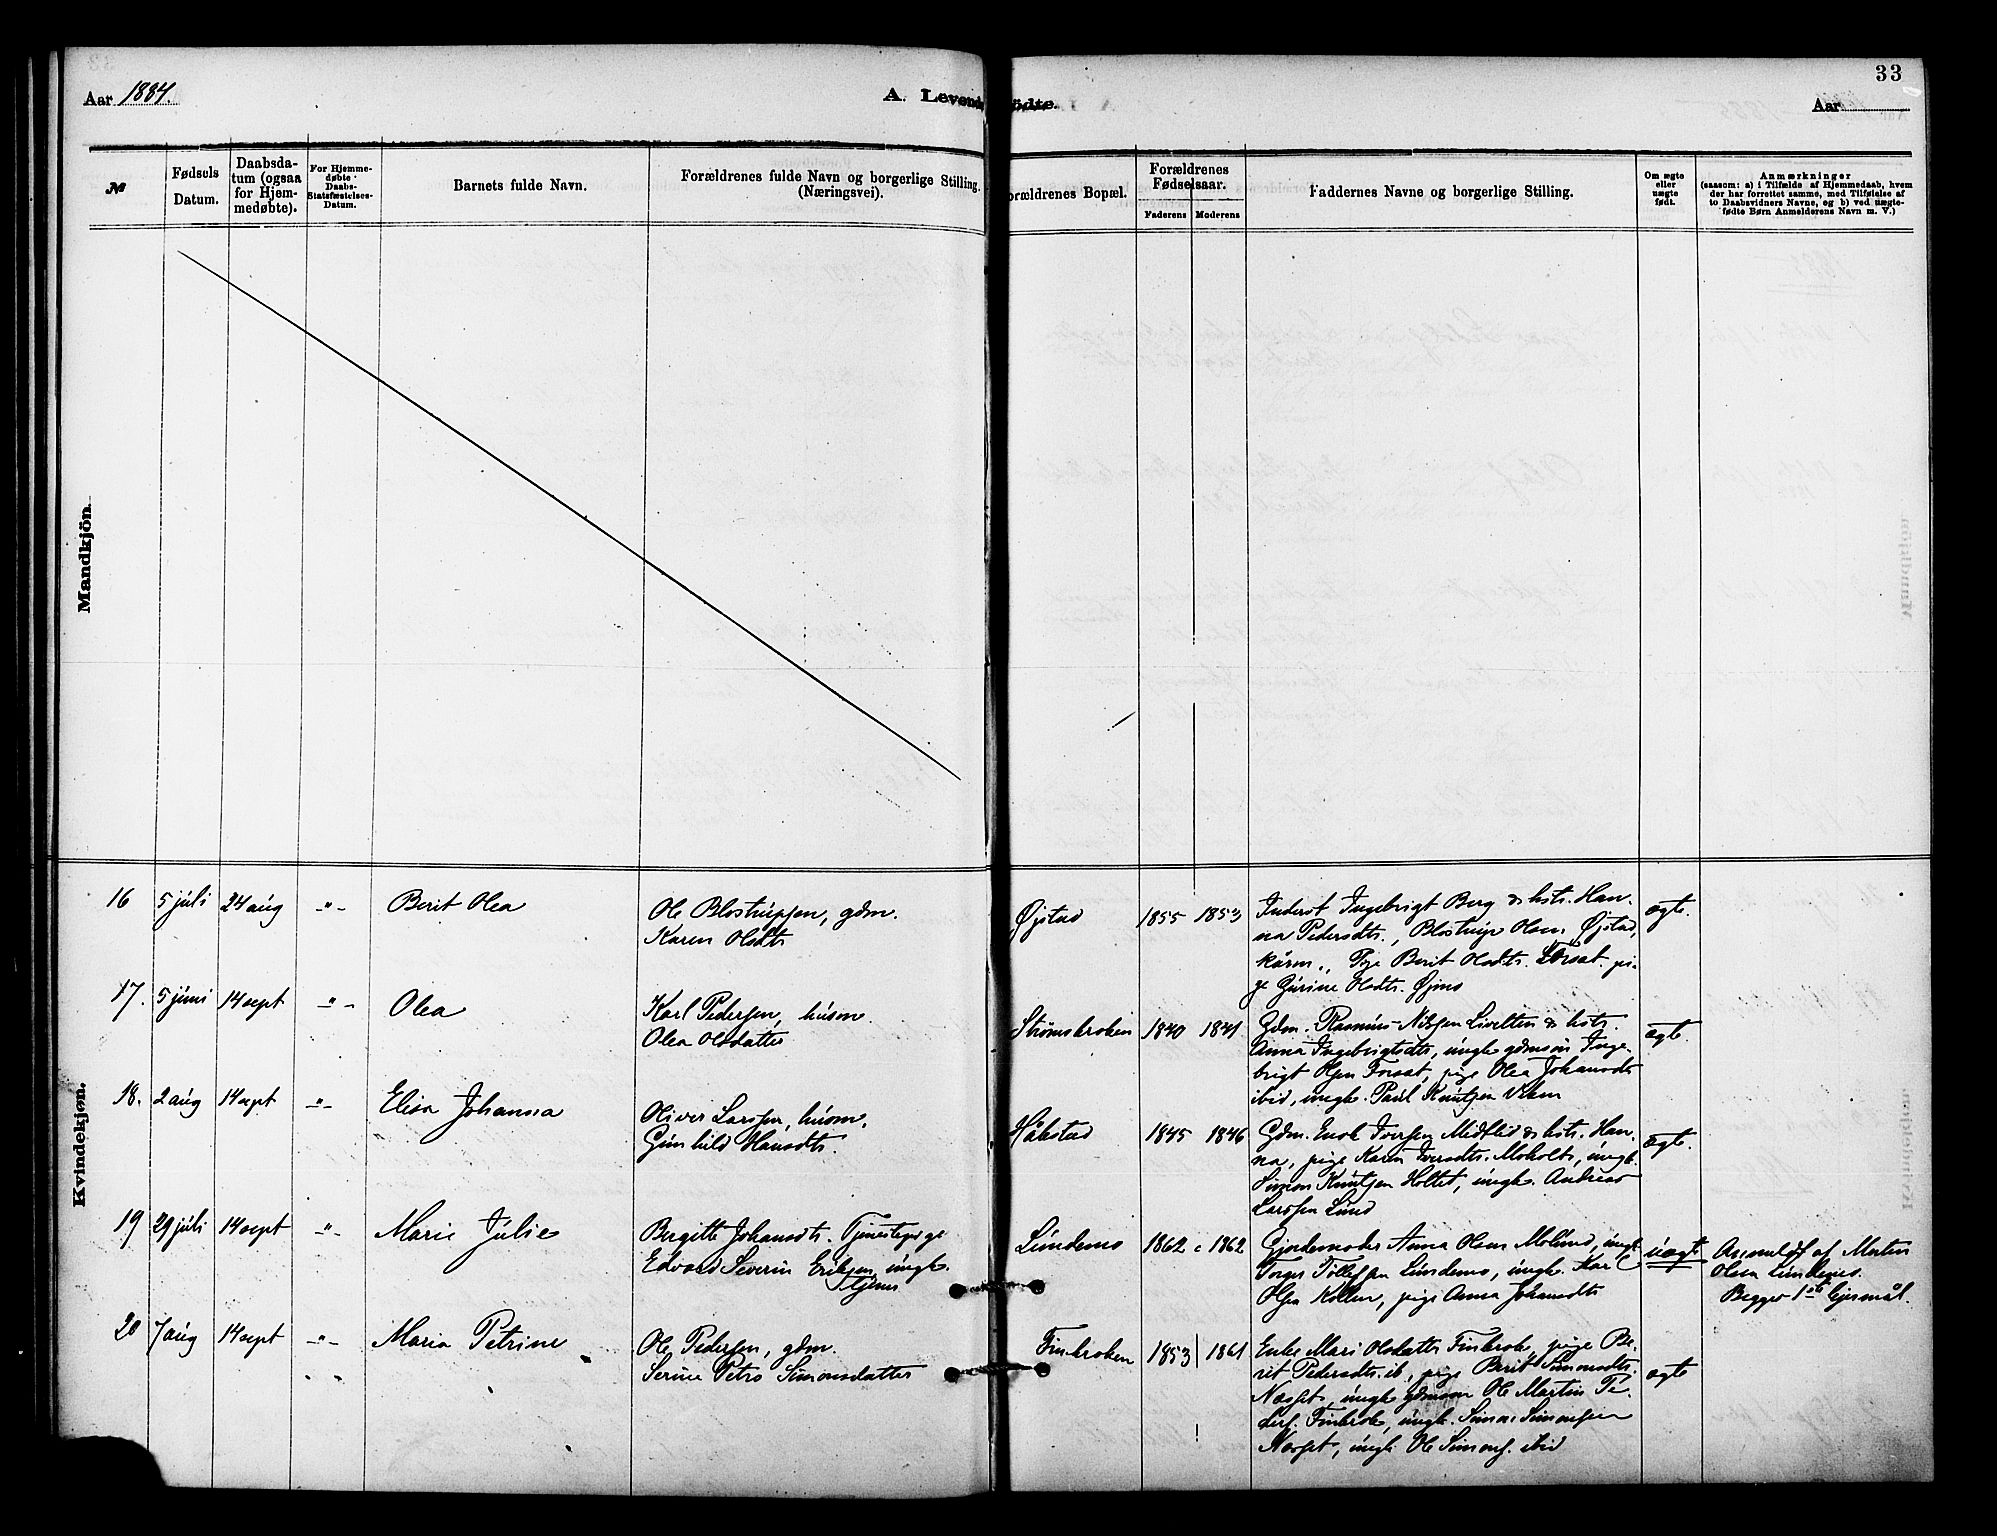 33
Aar 1884.
A. Levendefödte.
Aar
№
Fødsels Datum.
Daabsdatum (ogsaa for Hjemmedøbte).
For Hjemmedøbte Daabs-Statsfæstelses-Datum.
Barnets fulde Navn.
Forældrenes fulde Navn og borgerlige Stilling. (Næringsvei).
Forældrenes Bopæl.
Forældrenes Fødselsaar.
Faderens Moderens
Faddernes Navne og borgerlige Stilling.
Om ægte eller uægte født.
Anmærkninger
(saasom: a) i Tilfælde af Hjemmedaab, hvem
der har forrettet samme, med Tilføielse af
to Daabsvidners Navne, og b) ved uægte-
fødte Børn Anmelderens Navn m. V.)
Mandkjön.
Kvindekjøn.
16 5 juli 24 aug -"- Berit Olea
Ole Blostrupsen, gdm.
Karen Olsdtr
Øjstad 1855 1853
Inderst Ingebrigt Berg & hstr. Han-
na Pedersdtr., Blostrup Olsen Øjstad,
kårm., Pige Berit Olsdtr. Forsat, pi-
ge Gurine Olsdtr. Øjmo
ægte.
17. 5 juni 14 sept -"- Olea
Karl Pedersen, husm.
Olea Olsdatter
Strømskroken 1840 1841
Gdm. Rasmus Nilssen Livelten & hstr.
Anna Ingebrigtsdtr, ungk. gdmsøn Inge-
brigt Olsen Forsat, pige Olea Johansdtr
ibid, ungk. Paul Knutsen Viken
ægte.
18. 2 aug 14 sept -"- Elisa Johanna
Oliver Larssen, husm.
Gunhild Hansdtr.
Håkstad 1845 1846
Gdm. Enok Iversen Midtlid & hstr. Han-
na, pige Karen Iversdtr. Moholt, ungk.
Simon Knutsen Holtet, ungk. Andreas
Larssen Lund
ægte.
19 29 juli 14 sept -"- Marie Julie
Bergitte Johansdtr. Tjenestepige
Edvard Severin Eriksen, ungk.
Tjener
Lundemo 1862 1862
Gjordemoder Anna Olsen Molund, ungk
Torger Tollefsen Lundemo, ungk. Karl
Olsen Kollen, pige Anna Johansdtr
uægte
Anmeldt af Morten
Olsen Lundemo.
Begges 1ste Leiermål.
20 7 aug 14 sept -"- Maria Petrine
Ole Pedersen, gdm.
Serine Petro Simonsdatter
Finkroken 1853 1861
Enke Mari Olsdatter Finkrok, pige Be-
rit Pedersdtr. ib, pige Berit Simonsdtr.
Næsset, ungk. gdmsøn Ole Martin Pe-
ders. Finkrok, ungk. Simon Simonsen
Næsset, ungk. Ole Simons. ibid
ægte